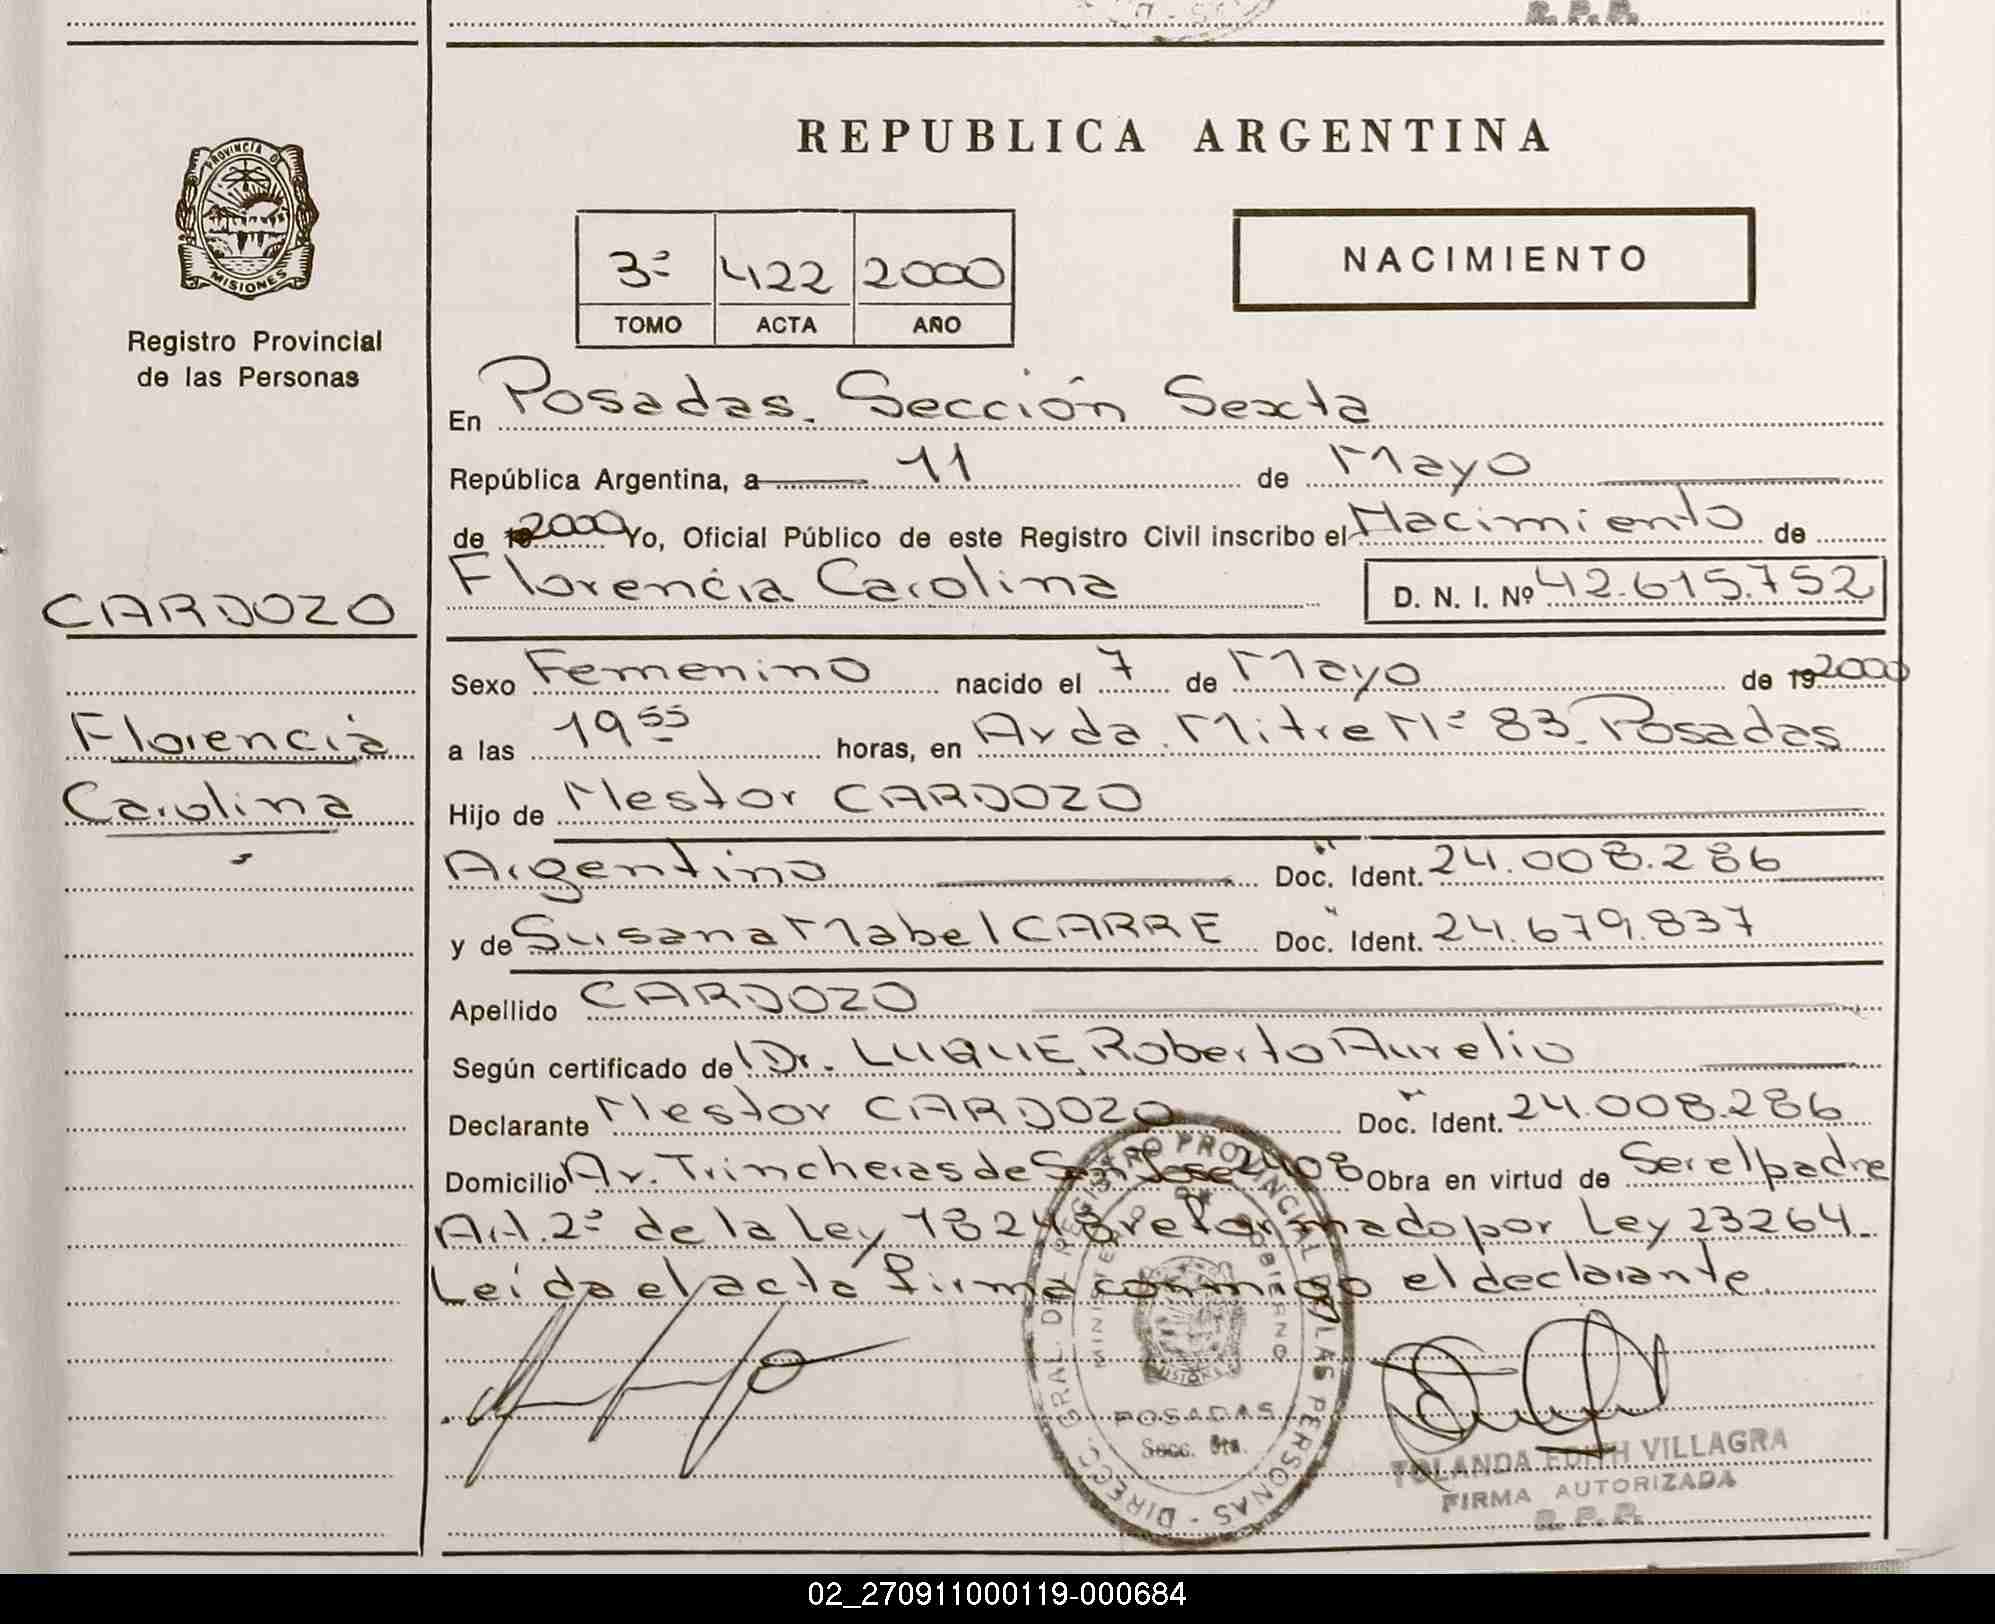 R. P. P.
REPUBLICA ARGENTINA
PROVINCIA D
MISIONES
Registro Provincial
de las Personas
3º 422 2000
TOMO ACTA AÑO
NACIMIENTO
En Posadas. Sección Sexta
República Argentina, a 11 de Mayo
de 2000 Yo, Oficial Público de este Registro Civil inscribo el Nacimiento de
Florencia Carolina D. N. I. Nº 42.615.752
CARDOZO
Florencia
Carolina
Sexo Femenino nacido el 7 de Mayo de 19 2000
a las 19 55 horas, en Avda. Mitre Nº 83. Posadas
Hijo de Nestor CARDOZO
Argentino Doc. Ident. 24.008.286
y de Susana Mabel CARRE Doc. Ident. 24.679.837
Apellido CARDOZO
Según certificado de Dr. LUQUE, Roberto Aurelio
Declarante Nestor CARDOZO Doc. Ident. 24.008.286
Domicilio Av. Trincheras de San Jose 2408 Obra en virtud de Ser el padre
Art. 2º de la Ley 18248 reformado por Ley 23264.
Leída el acta firma conmigo el declarante.
DIRECC. GRAL. DEL REGISTRO PROVINCIAL DE LAS PERSONAS -
MINISTERIO DE GOBIERNO
MISIONES
POSADAS
Secc. 6ta.
YOLANDA EDITH VILLAGRA
FIRMA AUTORIZADA
R. P. P.
02_270911000119-000684